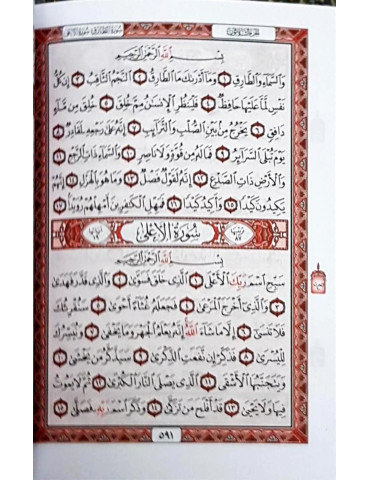 سورة الطارق، سورة الأعلى الجزء الثلاثون
بِسْمِ اللَّهِ الرَّحْمَٰنِ الرَّحِيمِ
وَالسَّمَاءِ وَالطَّارِقِ ١ وَمَا أَدْرَاكَ مَا الطَّارِقُ ٢ النَّجْمُ الثَّاقِبُ ٣ إِن كُلُّ
نَفْسٍ لَّمَّا عَلَيْهَا حَافِظٌ ٤ فَلْيَنظُرِ الْإِنسَانُ مِمَّ خُلِقَ ٥ خُلِقَ مِن مَّاءٍ
دَافِقٍ ٦ يَخْرُجُ مِن بَيْنِ الصُّلْبِ وَالتَّرَائِبِ ٧ إِنَّهُ عَلَىٰ رَجْعِهِ لَقَادِرٌ ٨
يَوْمَ تُبْلَى السَّرَائِرُ ٩ فَمَا لَهُ مِن قُوَّةٍ وَلَا نَاصِرٍ ١٠ وَالسَّمَاءِ ذَاتِ الرَّجْعِ ١١
وَالْأَرْضِ ذَاتِ الصَّدْعِ ١٢ إِنَّهُ لَقَوْلٌ فَصْلٌ ١٣ وَمَا هُوَ بِالْهَزْلِ ١٤ إِنَّهُمْ
يَكِيدُونَ كَيْدًا ١٥ وَأَكِيدُ كَيْدًا ١٦ فَمَهِّلِ الْكَافِرِينَ أَمْهِلْهُمْ رُوَيْدًا ١٧
سُورَةُ الْأَعْلَىٰ
بِسْمِ اللَّهِ الرَّحْمَٰنِ الرَّحِيمِ
سَبِّحِ اسْمَ رَبِّكَ الْأَعْلَى ١ الَّذِي خَلَقَ فَسَوَّىٰ ٢ وَالَّذِي قَدَّرَ فَهَدَىٰ
٣ وَالَّذِي أَخْرَجَ الْمَرْعَىٰ ٤ فَجَعَلَهُ غُثَاءً أَحْوَىٰ ٥ سَنُقْرِئُكَ
فَلَا تَنسَىٰ ٦ إِلَّا مَا شَاءَ اللَّهُ إِنَّهُ يَعْلَمُ الْجَهْرَ وَمَا يَخْفَىٰ ٧ وَنُيَسِّرُكَ
لِلْيُسْرَىٰ ٨ فَذَكِّرْ إِن نَّفَعَتِ الذِّكْرَىٰ ٩ سَيَذَّكَّرُ مَن يَخْشَىٰ ١٠
وَيَتَجَنَّبُهَا الْأَشْقَى ١١ الَّذِي يَصْلَى النَّارَ الْكُبْرَىٰ ١٢ ثُمَّ لَا يَمُوتُ
فِيهَا وَلَا يَحْيَىٰ ١٣ قَدْ أَفْلَحَ مَن تَزَكَّىٰ ١٤ وَذَكَرَ اسْمَ رَبِّهِ فَصَلَّىٰ ١٥
٥٩١